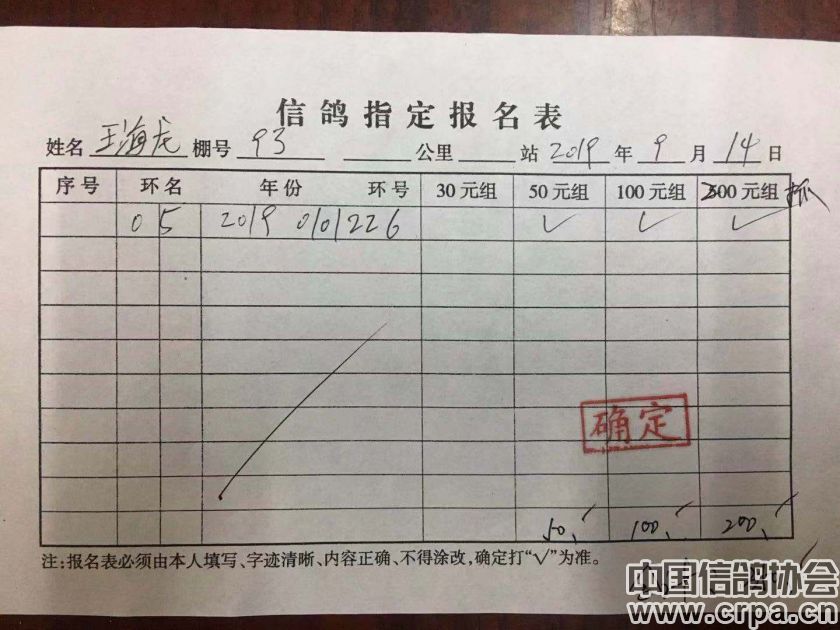 信鸽指定报名表
姓名 王海龙 棚号 93 公里 站 2019 年 9 月 14 日
序号 环名 年份 环号 30元组 50元组 100元组 200元组 抓
05 2019 0101226 √ √ √
确定
50 √ 100 √ 200 √
注:报名表必须由本人填写、字迹清晰、内容正确、不得涂改,确定打“√”为准。
中国信鸽协会
www.crpa.cn